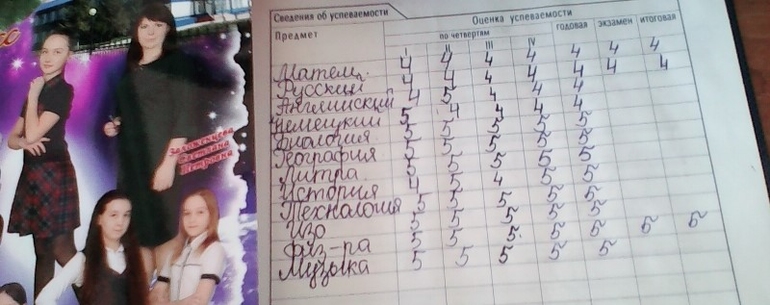 Заложенцева
Светлана
Петровна
Сведения об успеваемости
Оценка успеваемости
Предмет
по четвертям
годовая
экзамен
итоговая
I II III IV
Матем. 4 4 4 4 4 4 4
Русский 4 4 4 4 4 4 4
Английский 4 5 4 4 4
Немецкий 5 4 4 4 4
Биология 5 5 5 5 5
География 5 5 5 5 5
Литра 5 5 5 5 5
История 4 5 4 5 5
Технология 5 5 5 5 5
Изо 5 5 5 5 5
Физ-ра 5 5 5 5 5 5 5
Музыка 5 5 5 5 5